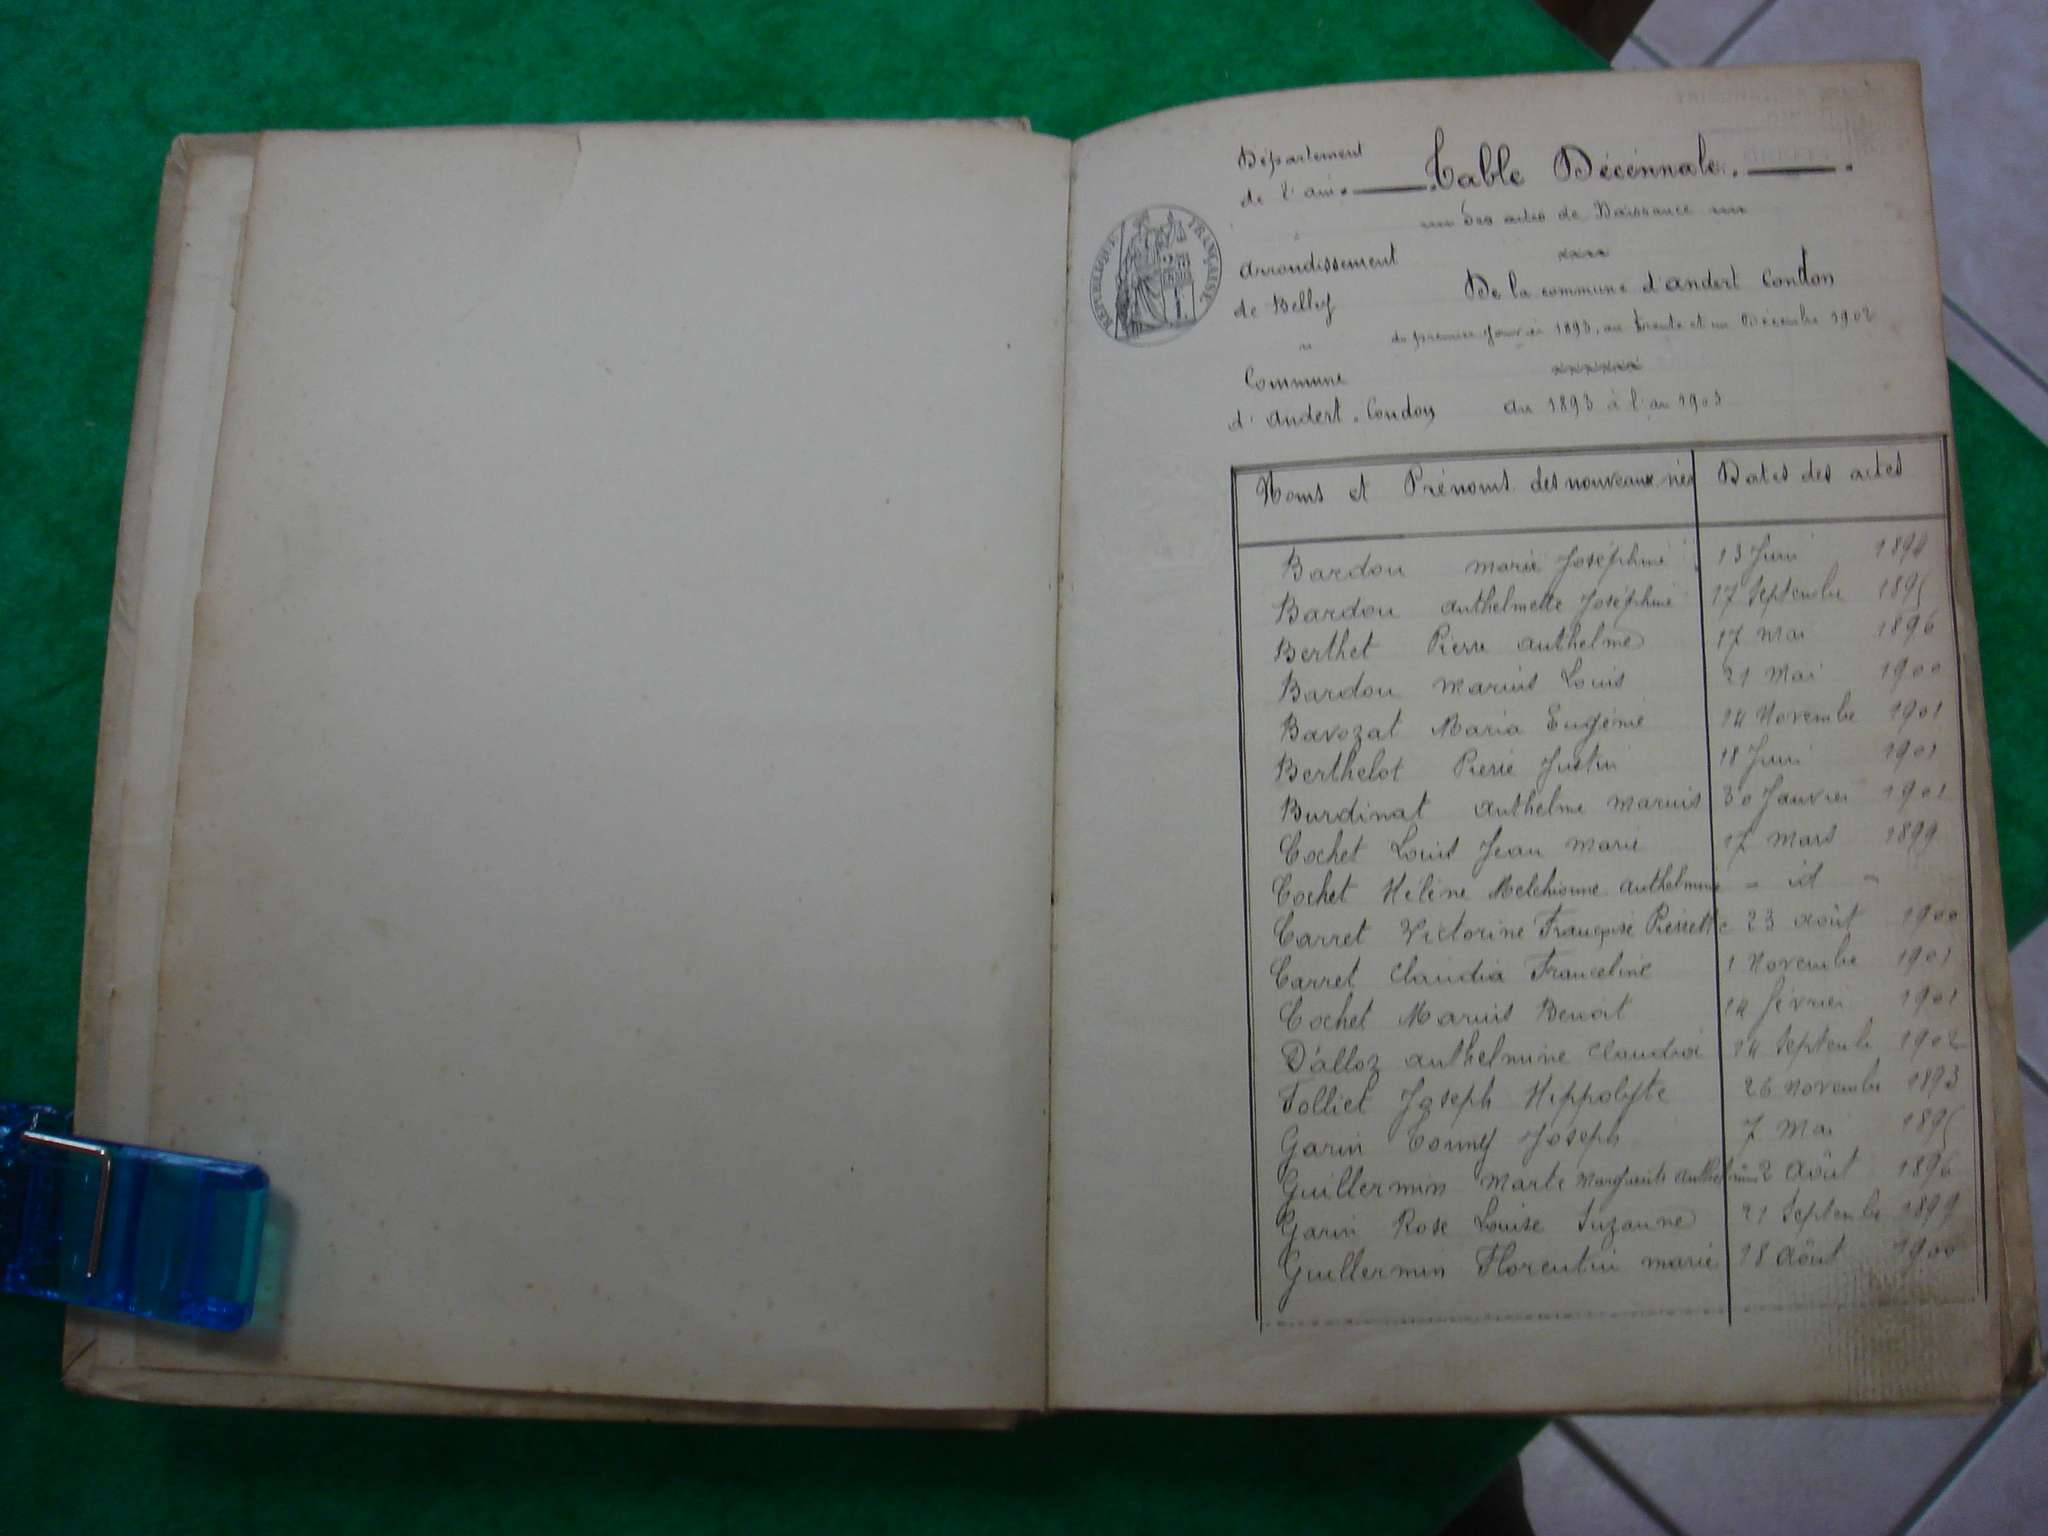 Département
de l'ain. Table Décénnale.
Des actes de Naissance
REPUBLIQUE FRANÇAISE
arrondissement
de Belley
De la commune d'andert Condon
du premier Janvier 1893, au trente et un Décembre 1902
Commune
d'andert-Condon
an 1893 à l'an 1903
Noms et Prénoms des nouveaux nés Dates des actes
Bardou marie Joséphine 13 Juin 1894
Bardou anthelmette Joséphine 17 Septembre 1895
Berthet Pierre anthelme 17 mai 1896
Bardou marius Louis 21 Mai 1900
Bavozat Maria Eugénie 14 Novembre 1901
Berthelot Pierre Justin 18 Juin 1901
Burdinat anthelme marius 30 Janvier 1901
Cochet Louis Jean marie 17 mars 1899
Cochet Hélène Melchionne anthelmine - id -
Carret Victorine Françoise Pierrette 23 août 1900
Carret Claudia Franceline 1 Novembre 1901
Cochet Marius Benoit 14 février 1901
D'alloz anthelmine Claudia 14 Septembre 1902
Folliet Joseph Hippolyte 26 novembre 1893
Garin Joseph 7 Mai 1895
Guillermin Marguerite anthelmine 2 Août 1896
Garin Rose Louise Suzanne 21 Septembre 1899
Guillermin Florentin marie 18 Août 1900